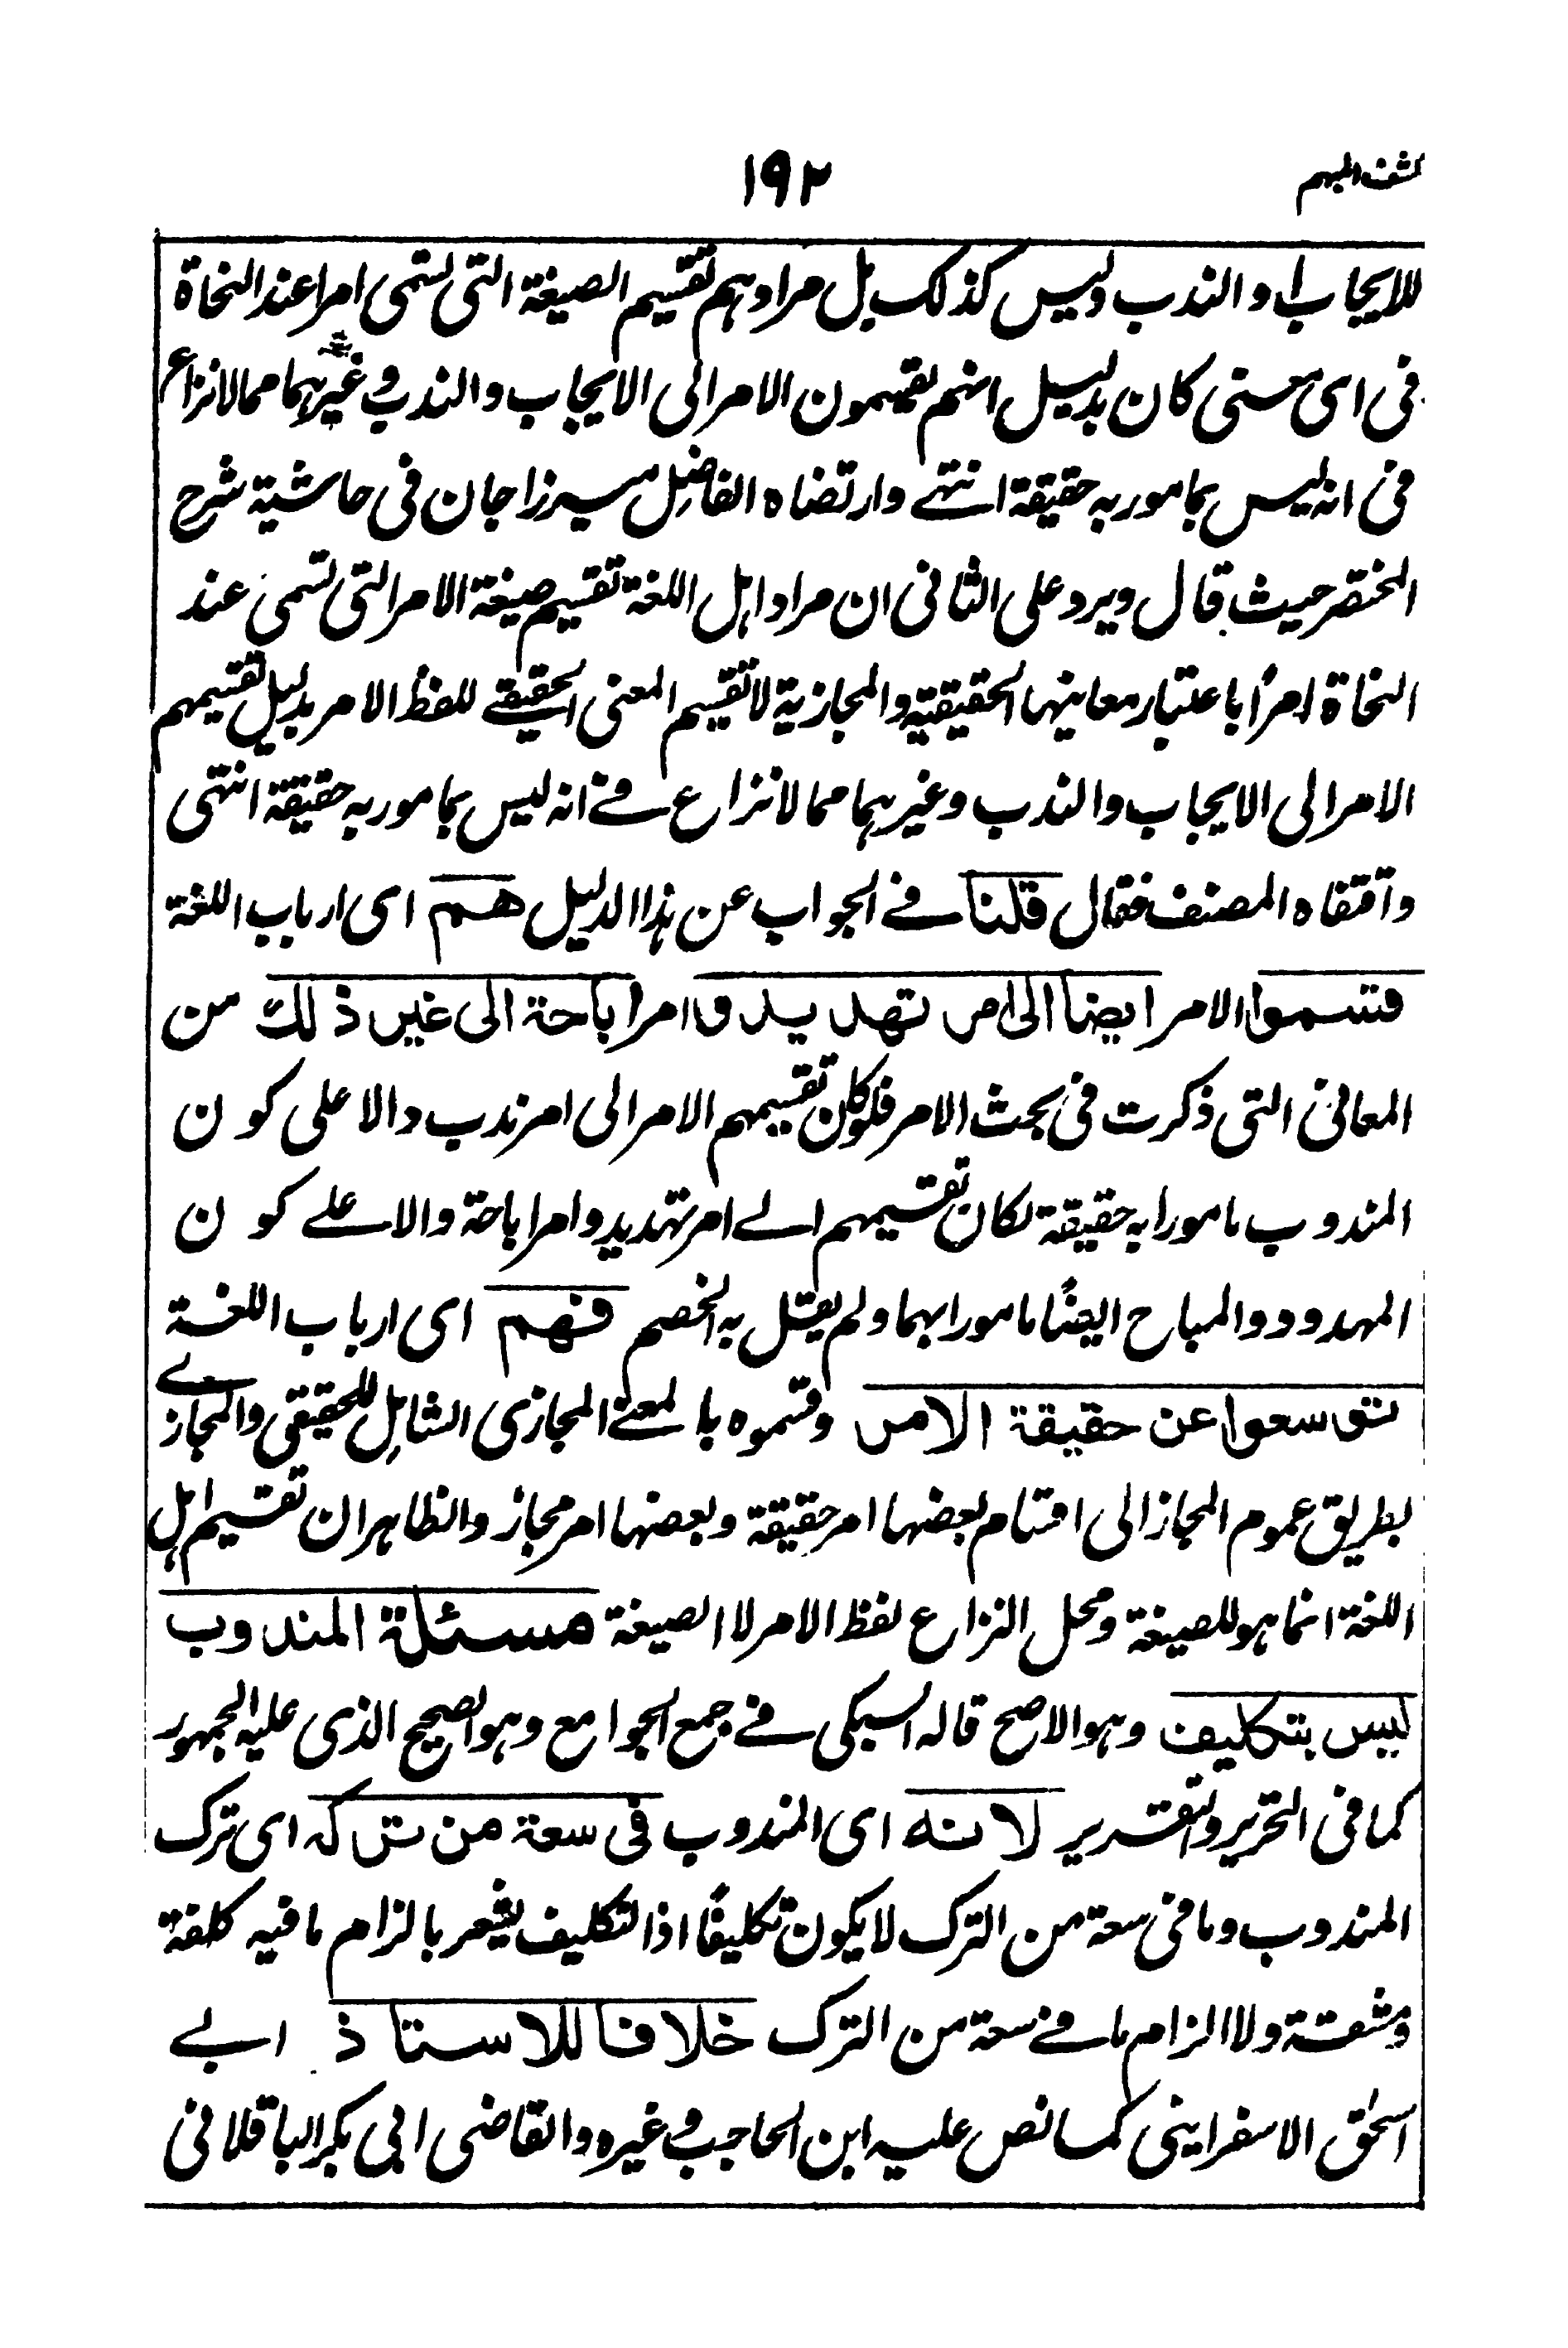 كشف المبهم
١٩٢
للايجاب او الندب وليس كذلك بل مرادهم تقسيم الصيغة التى تسمى امرا عند النحاة
فى اى معنى كان بدليل انهم يقسمون الامر الى الايجاب والندب وغيرهما مما لانزاع
فى انه ليس بمامور به حقيقة انتهى وارتضاه الفاضل ميرزاجان فى حاشية شرح
المختصر حيث قال ويرد على الثانى ان مراد اهل اللغة تقسيم صيغة الامر التى تسمى عند
النحاة امرًا باعتبار معانيها الحقيقية والمجازية لا تقسيم المعنى الحقيقى للفظ الامر بدليل تقسيمهم
الامر الى الايجاب والندب وغيرهما مما لانزاع فى انه ليس بمامور به حقيقة انتهى
واقتفاه المصنف فقال قلنا فى الجواب عن هذا الدليل هم اى ارباب اللغة
قسموا الامر ايضا الى امر تهديد وامر اباحة الى غير ذلك من
المعانى التى ذكرت فى بحث الامر فلو كان تقسيمهم الامر الى امر ندب دالا على كون
المندوب مامورا به حقيقة لكان تقسيمهم الى امر تهديد وامر اباحة والا على كون
المهدود والمباح ايضًا مامورا بهما ولم يقل به الخصم فهم اى ارباب اللغة
توسعوا عن حقيقة الامر وقسموه بالمعنى المجازى الشامل للحقيقى والمجازى
بطريق عموم المجاز الى اقسام بعضها امر حقيقة وبعضها امر مجاز والظاهر ان تقسيم اهل
اللغة انما هو للصيغة ومحل النزاع لفظ الامر لا الصيغة مسئلة المندوب
ليس بتكليف وهو الاصح قاله السبكى فى جمع الجوامع وهو الصحيح الذى عليه الجمهور
كما فى التحرير والتقرير لانه اى المندوب فى سعة من تركه اى ترك
المندوب وما فى سعة من الترك لا يكون تكليفًا اذ التكليف يشعر بالزام ما فيه كلفة
ومشقة ولا الزام ما فى سعة من الترك خلافا للاستاذ ابى
اسحٰق الاسفراينى كما نص عليه ابن الحاجب وغيره والقاضى ابى بكر الباقلانى